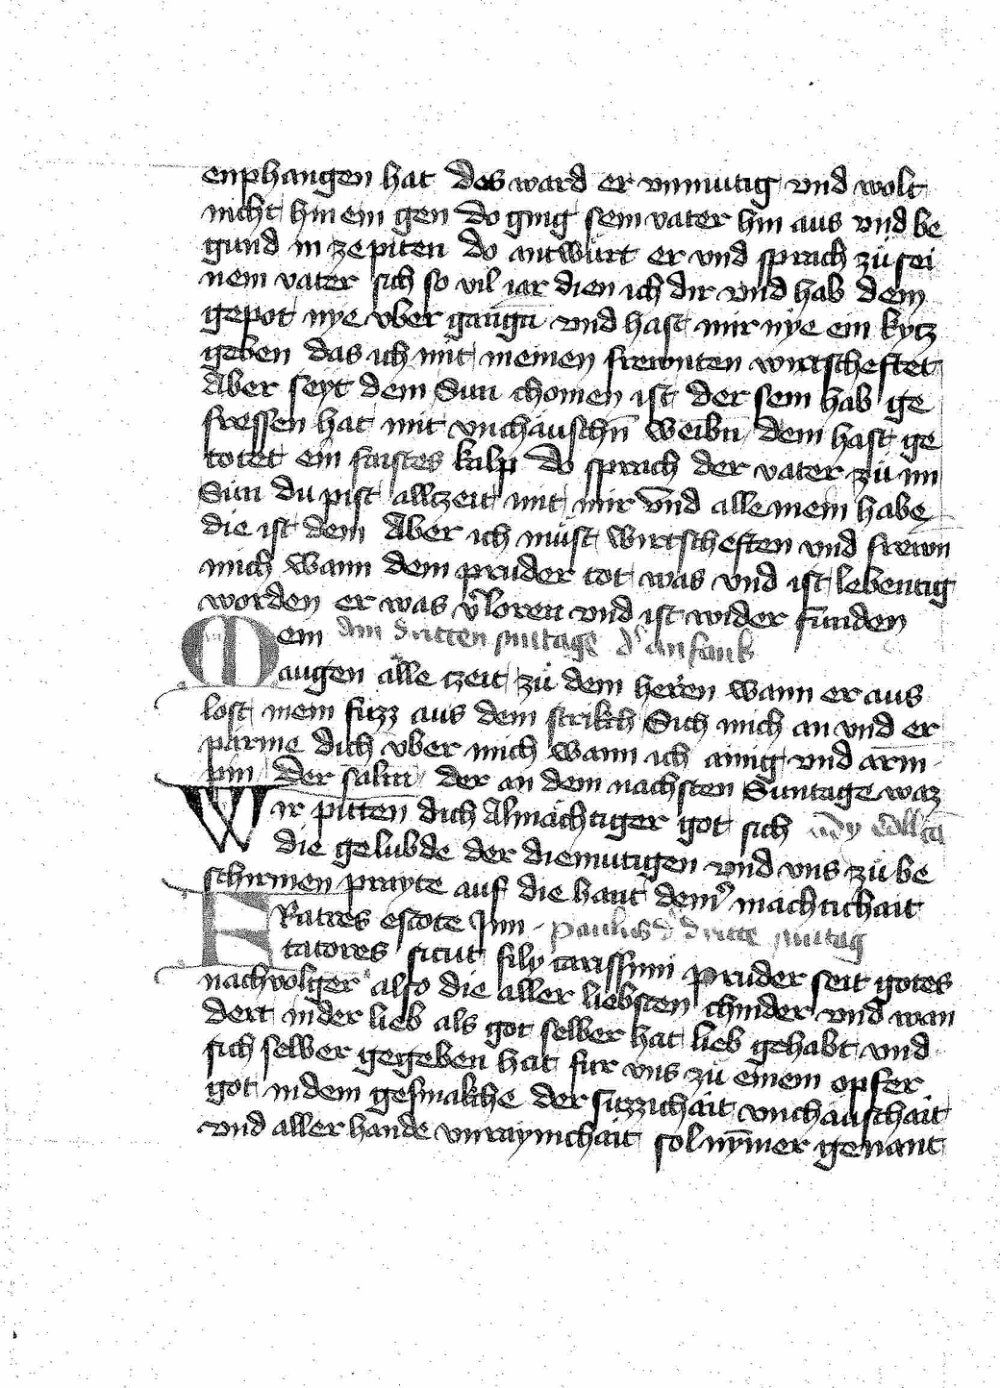 enphangen hat des ward er vnmutig vnd wolt
nicht hin ein gen do ging sein vater hin aus vnd be
gund in ze piten do antwurt er vnd sprach zu sei
nem vater sich so vil iar dien ich dir vnd hab dein
gepot nye vber gangn̄ vnd hast mir nye ein kytz
geben das ich mit meinen frewnten wirtscheftet
Aber seyt dein Sun chomen ist der sein hab ge
fressen hat mit vnchauschn̄ weibn̄ dem hast ge
totet ein faistes kalp do sprach der vater zu im
Sun du pist allczeit mit mir vnd alle mein habe
die ist dein Aber ich must wirtscheften vnd frewn
mich wann dein pruder tot was vnd ist lebentig
worden er was v̓loren vnd ist wider funden
Mein am dritten suntage d' anfank
augen alle czeit zu dem herren wann er aus
lost mein fuzz aus dem strikch Sich mich an vnd er
parme dich vber mich wann ich ainig vnd arm
pin der salm der an dem nachsten Suntage waz
Wir pitten dich Almachtiger got sich dy coll̄ca
die gelubde der diemutigen vnd vns zu be
schirmen prayte auf die hant deinˀ machtichait
FRatres estote Imi paulus d' dritte suntag
tatores sicut filij carissimi pruder seit gotes
nachvolger also die aller liebsten chinder vnd wan
dert in der lieb als got selber hat lieb gehabt vnd
sich selber gegeben hat fur vns zu einem opfer
got in dem gesmakche der suzzichait vnchauschait
vnd aller hande vnraynichait sol nȳmer genant